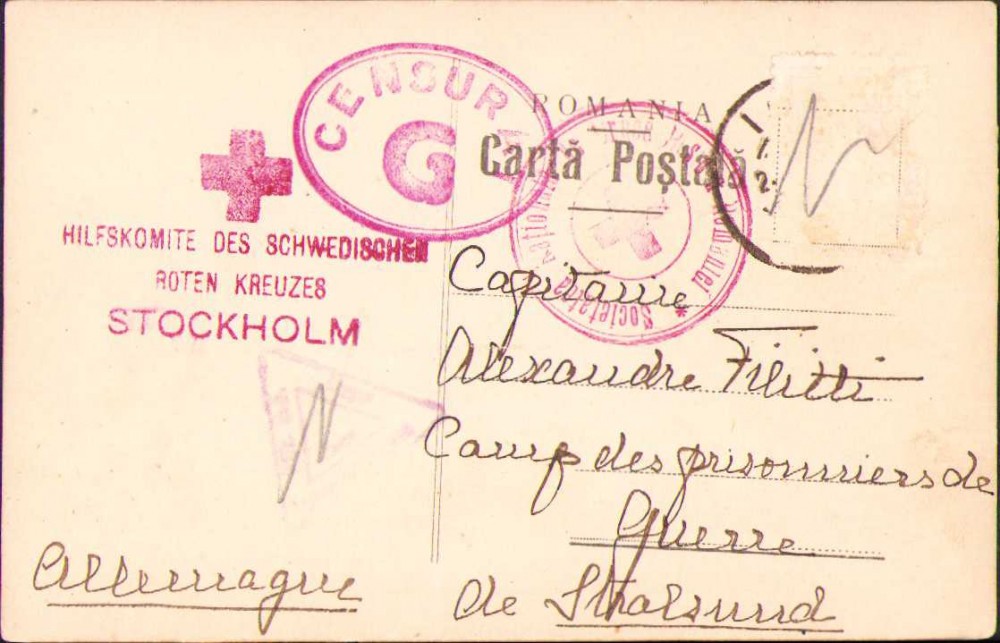 CENSURA
G
ROMANIA
Cartă Poștală
HILFSKOMITE DES SCHWEDISCHEN
ROTEN KREUZES
STOCKHOLM
Societatea Națională
României *
Capitaine
Alexandre Filitti
Camp des prisonniers de
Guerre
de Stralsund
Allemagne